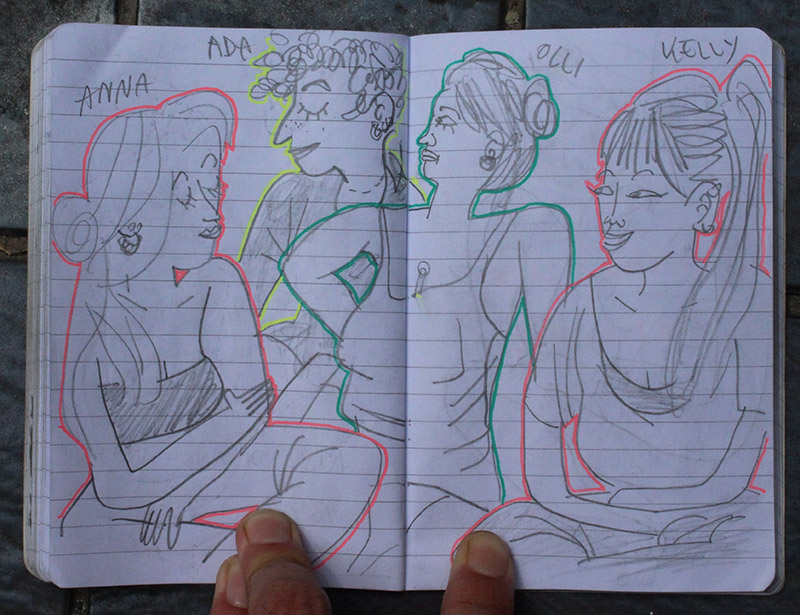 ANNA
ADA
OLLI
KELLY